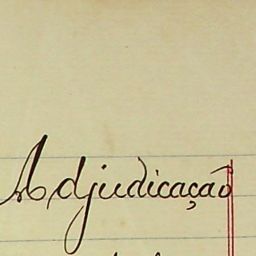 Adjudicação